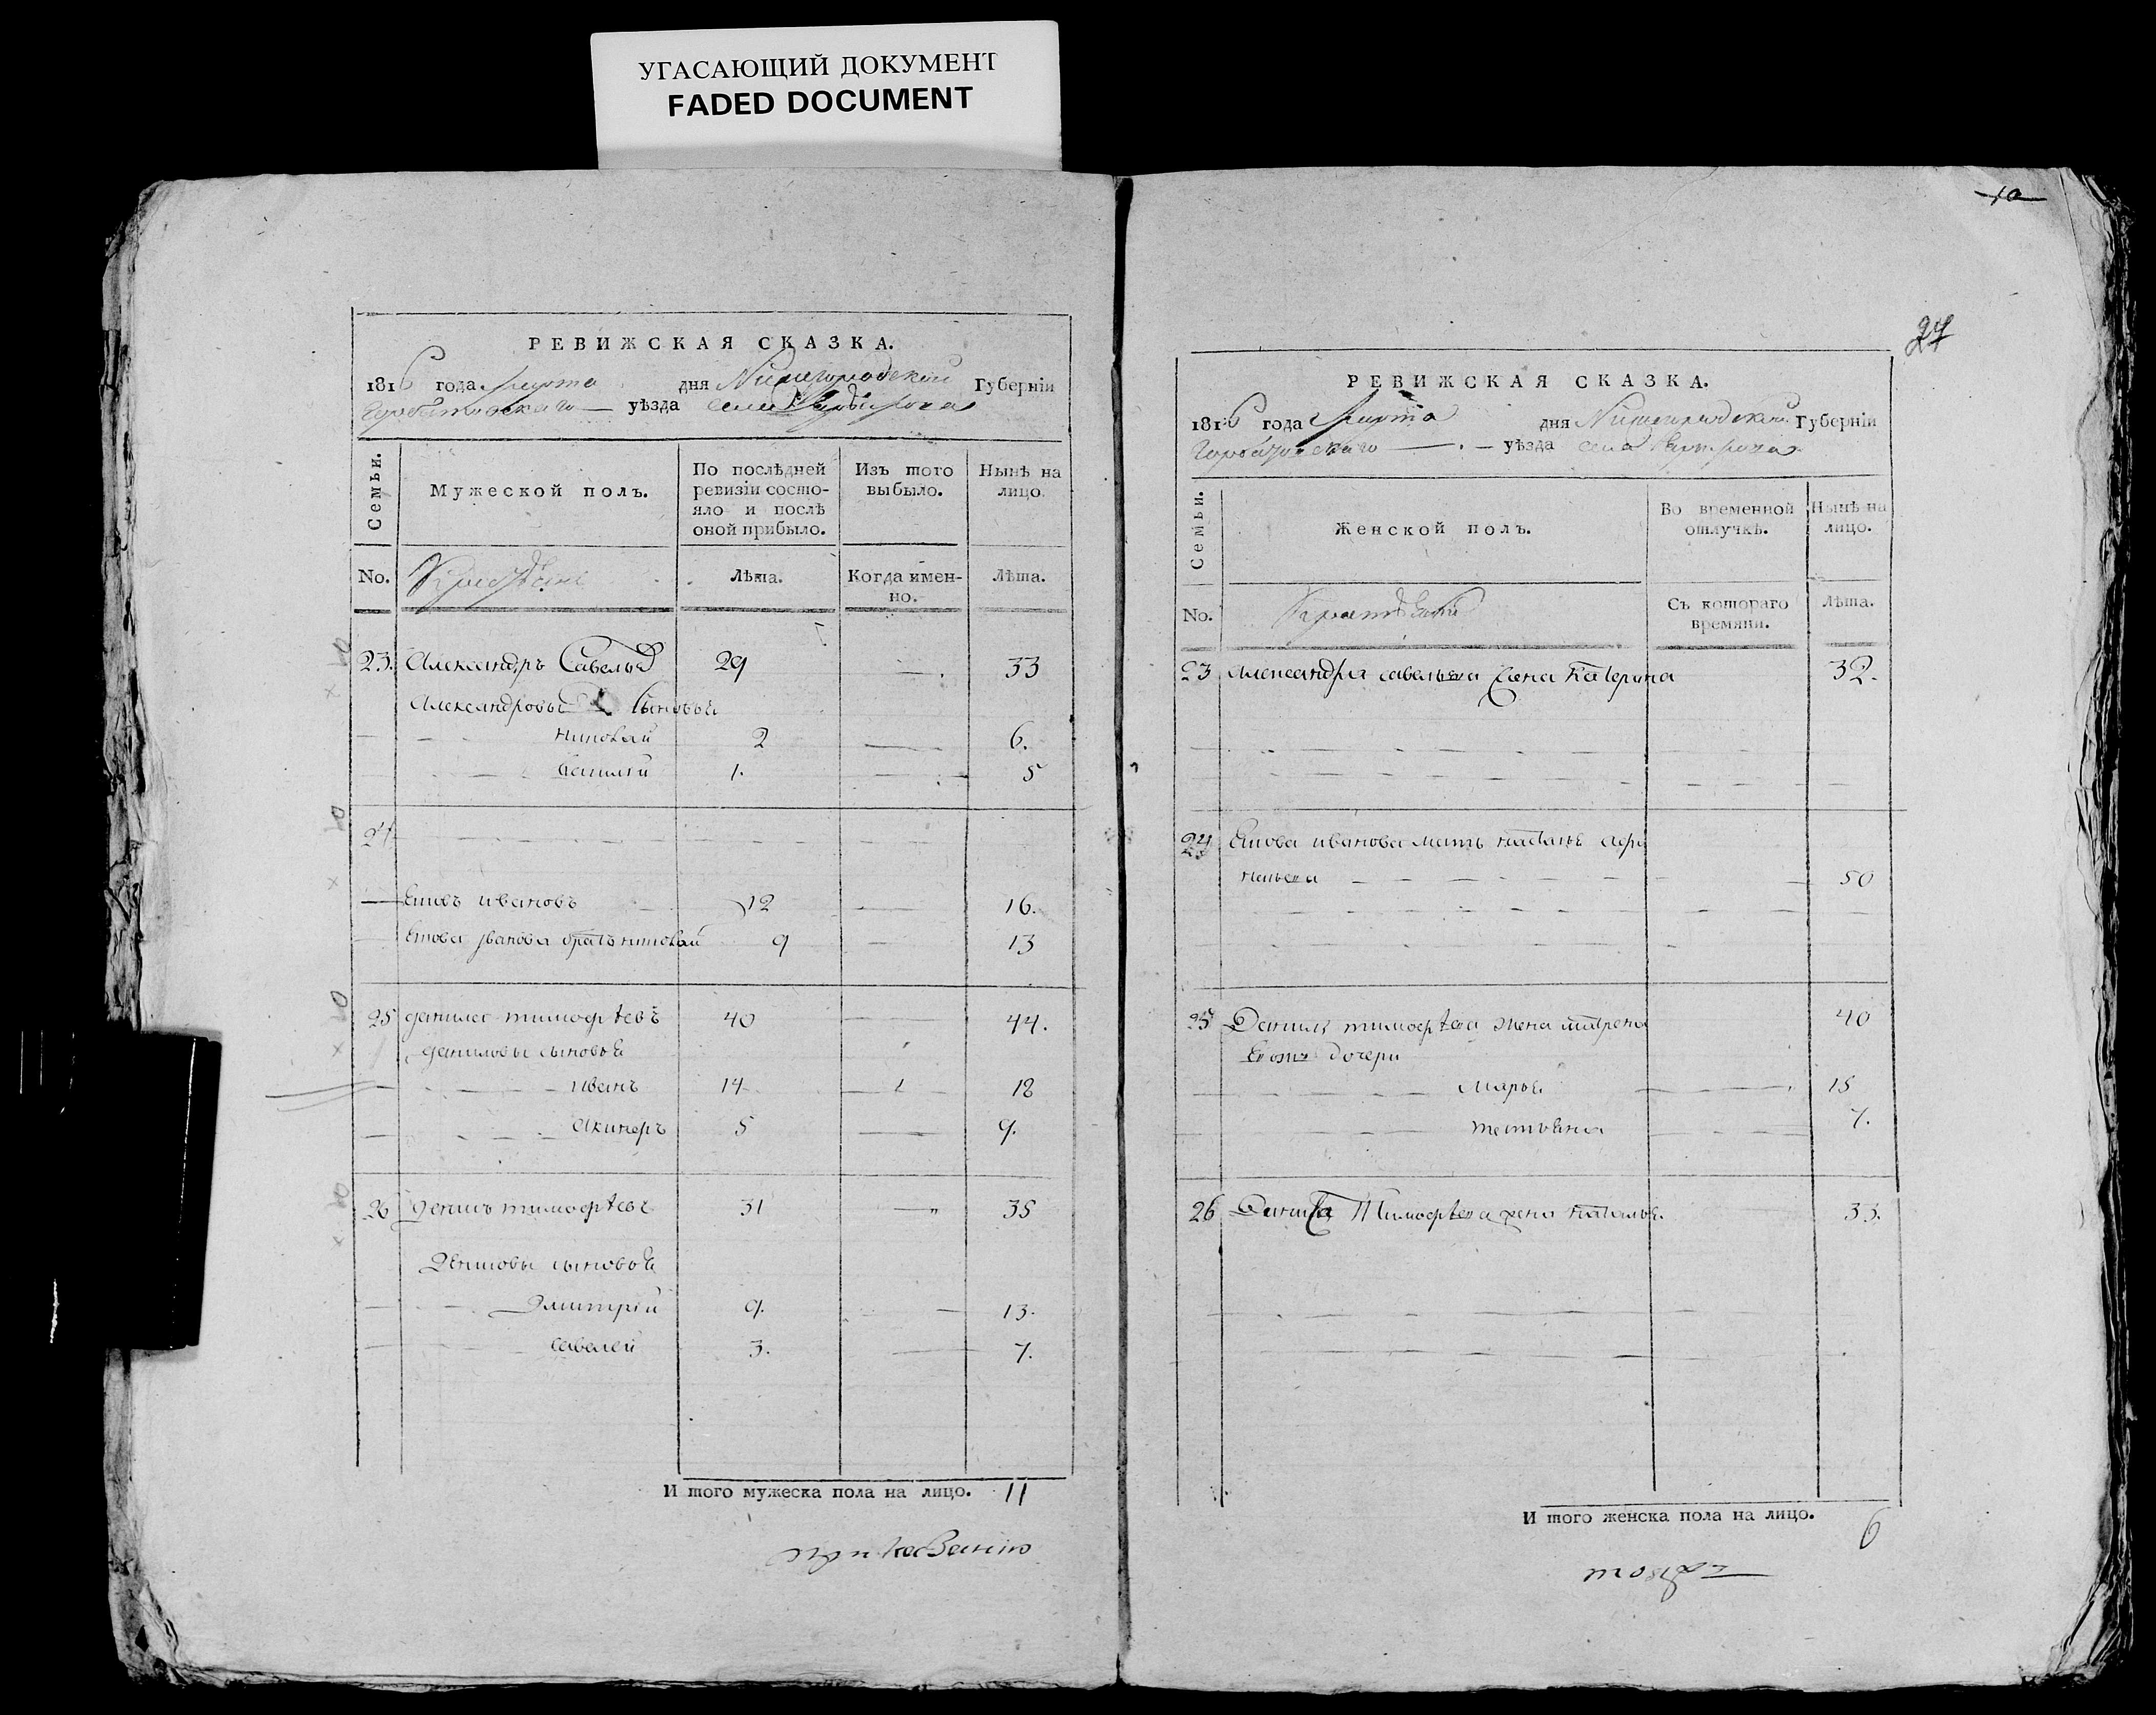 УГАСАЮЩИЙ ДОКУМЕНТ
FADED DOCUMENT
10
27
РЕВИЖСКАЯ СКАЗКА.
1816 года марта дня Нижегородской Губерніи
Горбатовскаго уѣзда села
Семьи. Мужеской полъ. По послѣдней ревизіи состояло и послѣ оной прибыло. Изъ того выбыло. Нынѣ на лицо.
No. Крестьяне Лѣта. Когда имен-но. Лѣта.
23. Александръ Савельев 29 33
Александровы сыновья
николай 2 6.
василей 1. 5
24
Ефимъ ивановъ 12 16.
иванова братъ николай 9 13
25 данило тимофѣевъ 40 44.
даниловы сыновья
иванъ 14 18
5 9.
26 денисъ тимофѣевъ 31 35
Денисовы сыновья
Дмитрей 9. 13.
савелей 3. 7.
И того мужеска пола на лицо. 11
РЕВИЖСКАЯ СКАЗКА.
1816 года марта дня Нижегородской Губерніи
Горбатовскаго уѣзда села
Семьи. Женской полъ. Во временной отлучкѣ. Нынѣ на лицо.
No. Крестьяне Съ котораго времяни. Лѣта.
23 Александра савельева жена катерина 32.
24 иванова мать наталья
50
25 Данила тимофѣева жена матрена 40
дочери
марья 15
татьяна 7.
26 Дениса Тимофѣева жена наталья. 33.
И того женска пола на лицо. 6